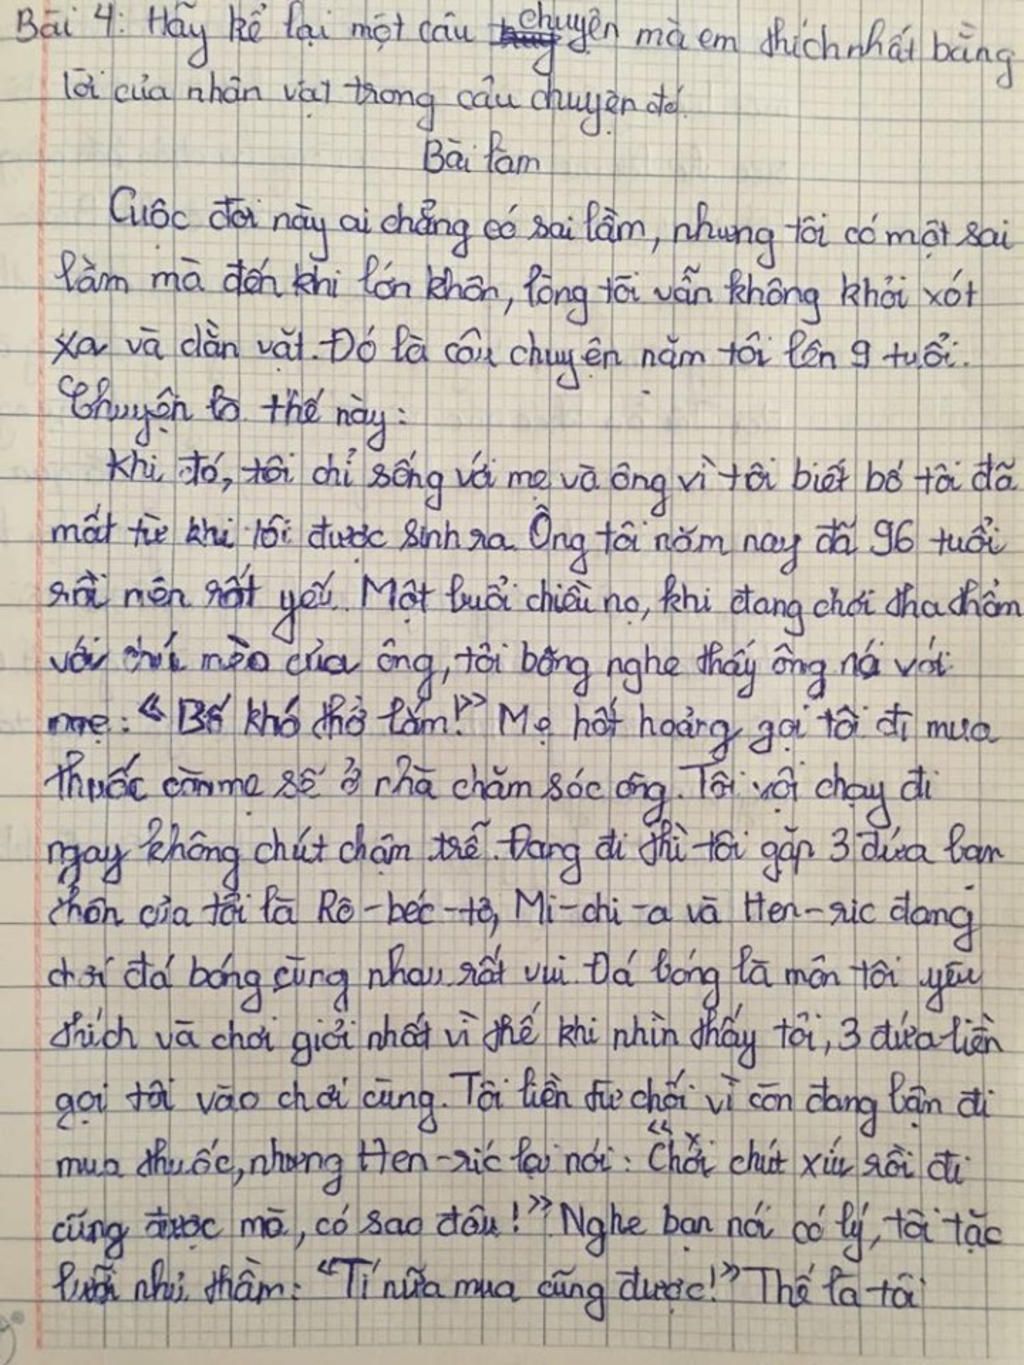 Bài 4: Hãy kể lại một câu chuyện mà em thích nhất bằng
lời của nhân vật trong câu chuyện đó.
Bài làm
Cuộc đời này ai chẳng có sai lầm, nhưng tôi có một sai
lầm mà đến khi lớn khôn, lòng tôi vẫn không khỏi xót
xa và dằn vặt. Đó là câu chuyện năm tôi lên 9 tuổi.
Chuyện là thế này:
Khi đó, tôi chỉ sống với mẹ và ông vì tôi biết bố tôi đã
mất từ khi tôi được sinh ra. Ông tôi năm nay đã 96 tuổi
rồi nên rất yếu. Một buổi chiều nọ, khi đang chơi tha thẩn
với chú mèo của ông, tôi bỗng nghe thấy ông nói với
mẹ: "Bố khó thở lắm!" Mẹ hốt hoảng gọi tôi đi mua
thuốc còn mẹ sẽ ở nhà chăm sóc ông. Tôi vội chạy đi
ngay không chút chậm trễ. Đang đi thì tôi gặp 3 đứa bạn
thân của tôi là Rô-béc-tô, Mi-chi-a và Hen-ric đang
chơi đá bóng cùng nhau rất vui. Đá bóng là môn tôi yêu
thích và chơi giỏi nhất vì thế khi nhìn thấy tôi, 3 đứa liền
gọi tôi vào chơi cùng. Tôi liền từ chối vì còn đang bận đi
mua thuốc, nhưng Hen-ric lại nói: "Chơi chút xíu rồi đi
cũng được mà, có sao đâu!" Nghe bạn nói có lý, tôi tặc
lưỡi nhủ thầm: "Tí nữa mua cũng được!" Thế là tôi